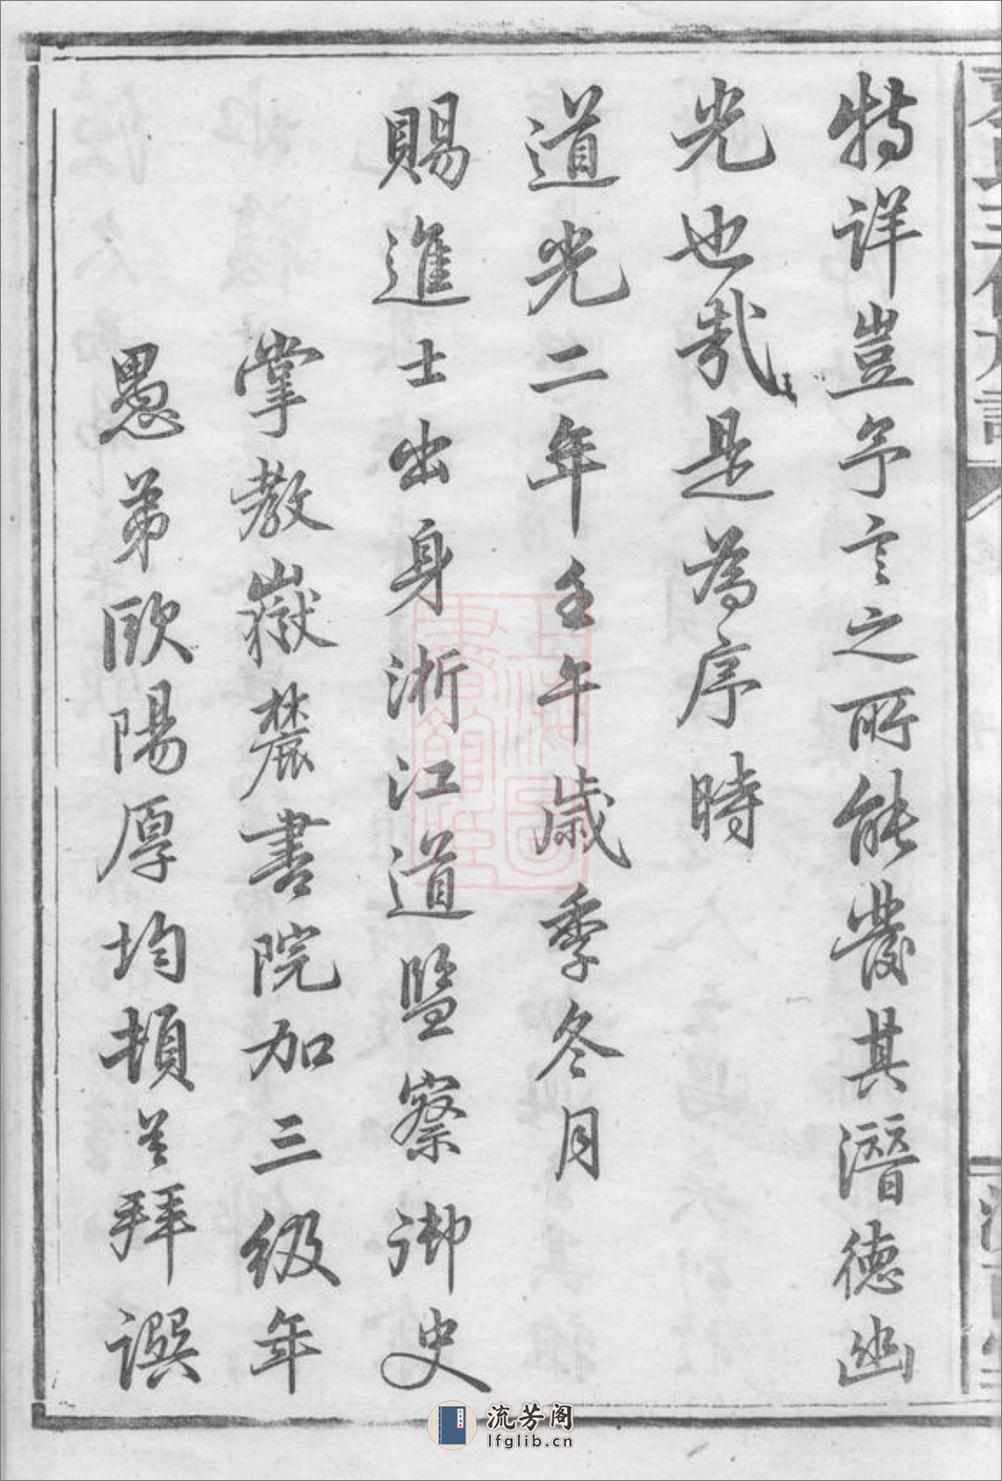 特詳豈予言之所能發其潛德幽
光也哉是為序時
道光二年壬午歲季冬月
賜進士出身浙江道監察御史
掌教嶽麓書院加三級年
愚弟歐陽厚均頓首拜譔
流芳阁
lfglib.cn